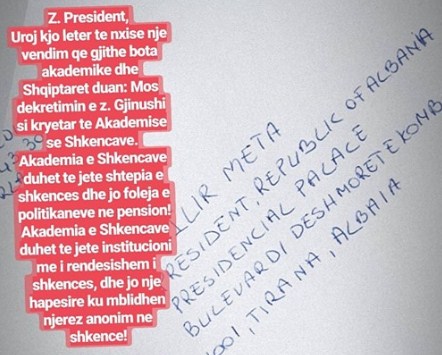 Z. President,
Uroj kjo leter te nxise nje
vendim qe gjithe bota
akademike dhe
Shqiptaret duan: Mos
dekretimin e z. Gjinushi
si kryetar te Akademise
se Shkencave.
Akademia e Shkencave
duhet te jete shtepia e
shkences dhe jo foleja e
politikaneve ne pension!
Akademia e Shkencave
duhet te jete institucioni
me i rendesishem i
shkences, dhe jo nje
hapesire ku mblidhen
njerez anonim ne
shkence!
ILIR META
RESIDENT, REPUBLIK OF ALBANIA
PRESIDENCIAL PALACE
BULEVARDI DESHMORET E KOMB
1001, TIRANA, ALBAIA